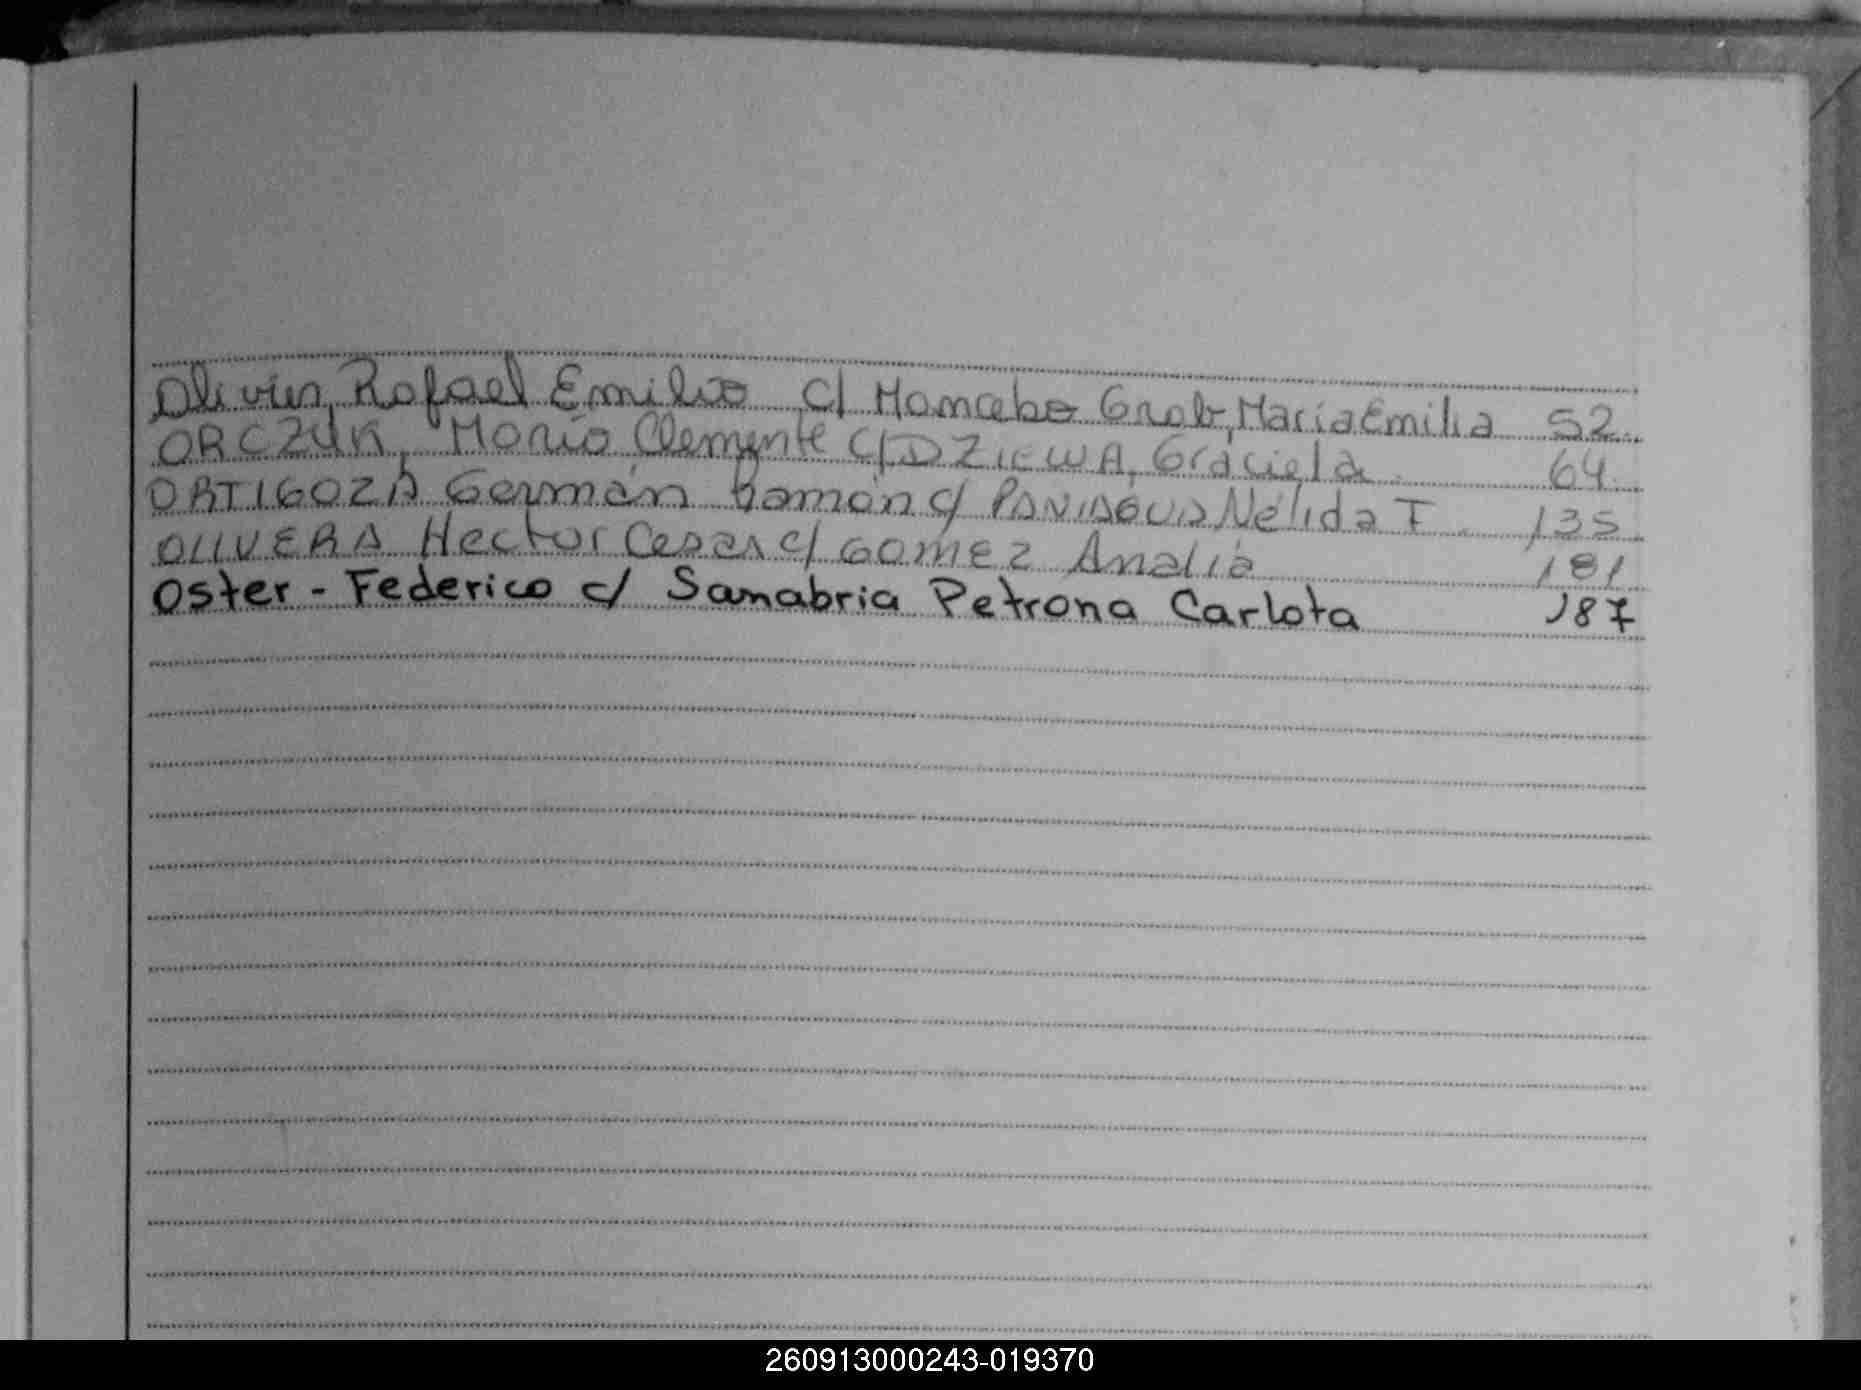 Olivier, Rafael Emilio c/ Mancebo Grab, María Emilia 52
ORCZUK, Mario Clemente C/DZIEWA, Graciela 64
ORTIGOZA Germán Ramón c/ PANIAGUA Nélida T. 135
OLIVERA Hector Cesar c/ GOMEZ Analía 181
Oster - Federico c/ Sanabria Petrona Carlota 187
260913000243-019370